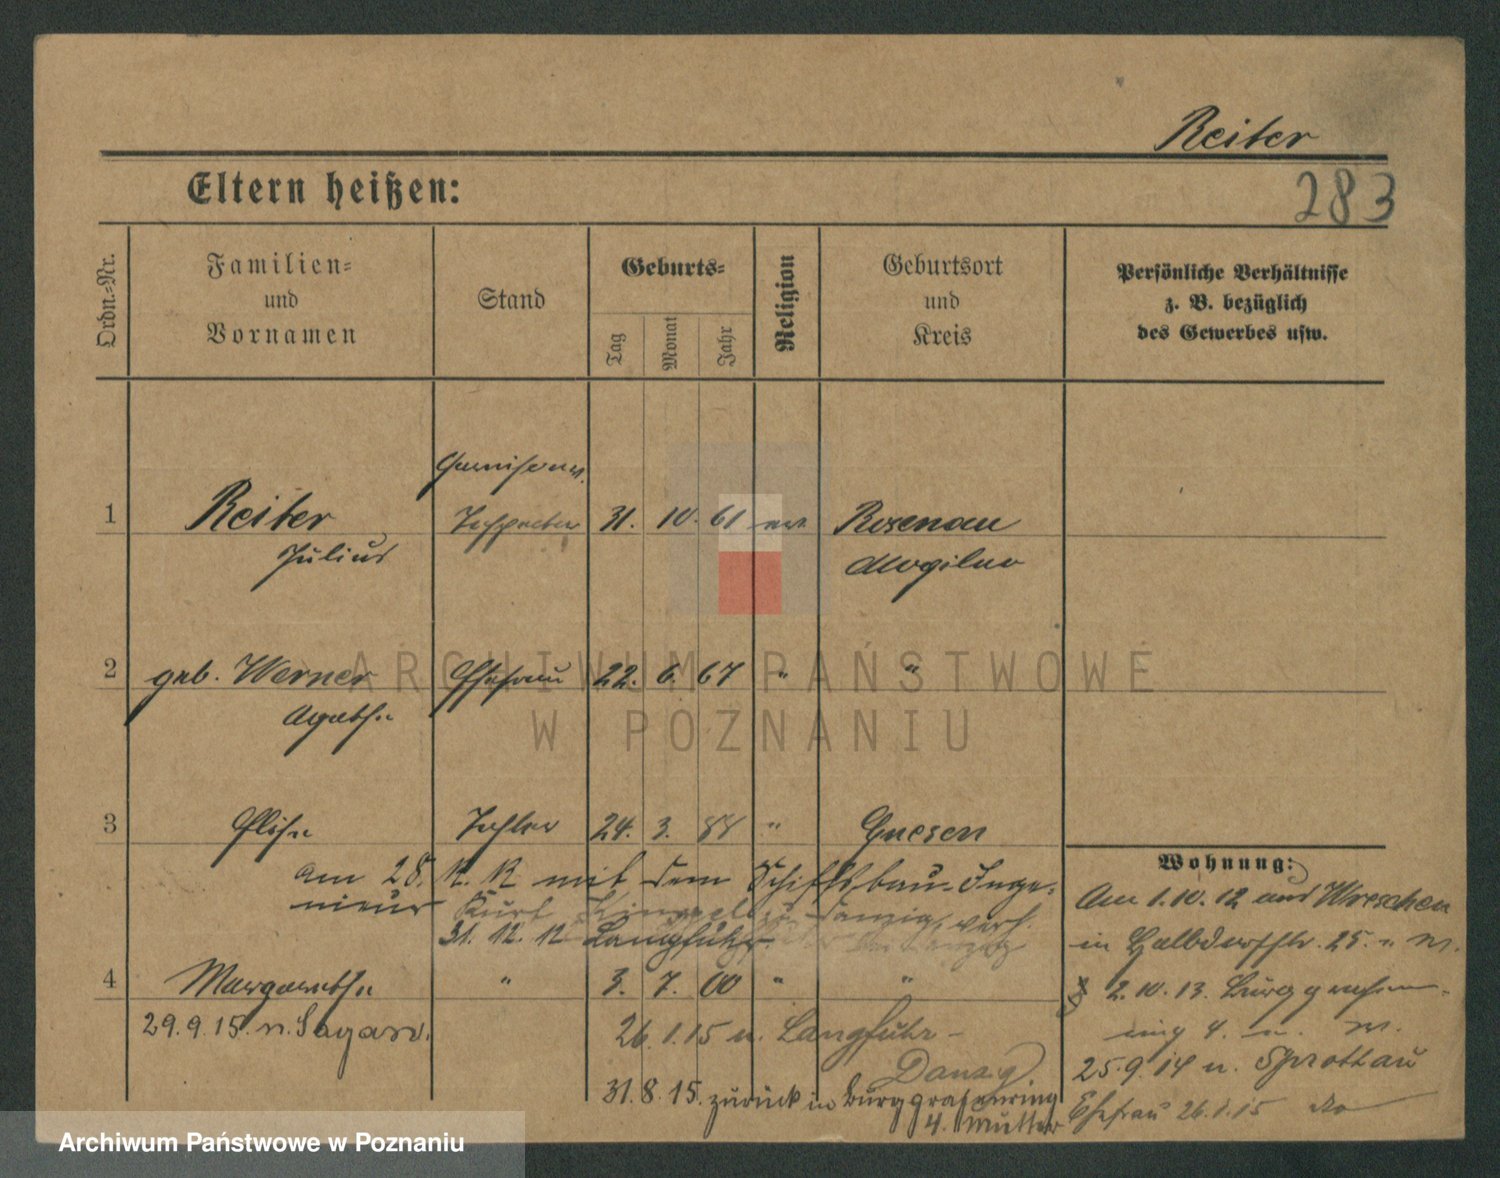 Reiter
283
Eltern heißen:
Ordn.-Nr.
Familien-
und
Vornamen
Stand
Geburts-
Tag
Monat
Jahr
Religion
Geburtsort
und
Kreis
Persönliche Verhältnisse
z. B. bezüglich
des Gewerbes usw.
Garnisons
1 Reiter 31. 10. 61 Rosenau
Julius Mogilno
2 geb. Werner Ehefrau 22. 6. 67 " "
Agathe
3 Elise Tochter 24. 3. 88 " Gnesen
am 28. mit dem Schiffsbau-Inge-
nieur Kurt Danzig, verh.
31. 12. 12 Langfuhr
4 Margarethe " 3. 7. 00 " "
29.9.15. n. Sagan.
26.1.15 n. Langfuhr -
Danzig.
31.8.15. zurück in Burggrafenring
4. Mutter
Wohnung:
Am 1.10.12 aus Wreschen
in Halbdorfstr. 25. u. M.
2.10.13. Burggrafen-
ring 4. u. M.
25.9.14 n. Sprottau
Ehefrau 26.1.15
ARCHIWUM PAŃSTWOWE
W POZNANIU
Archiwum Państwowe w Poznaniu